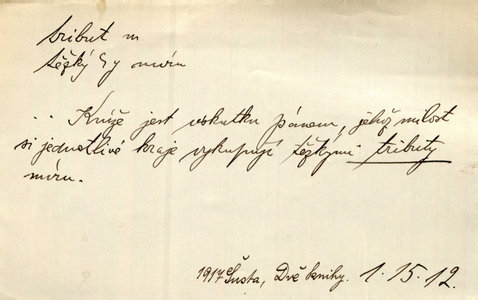 tribut m
těžký ~y míru
.. Kníže jest vskutku pánem, jehož milost
si jednotlivé kraje vykupují těžkými tributy
míru.
1917 Šusta, Dvě knihy. 1.15.12.